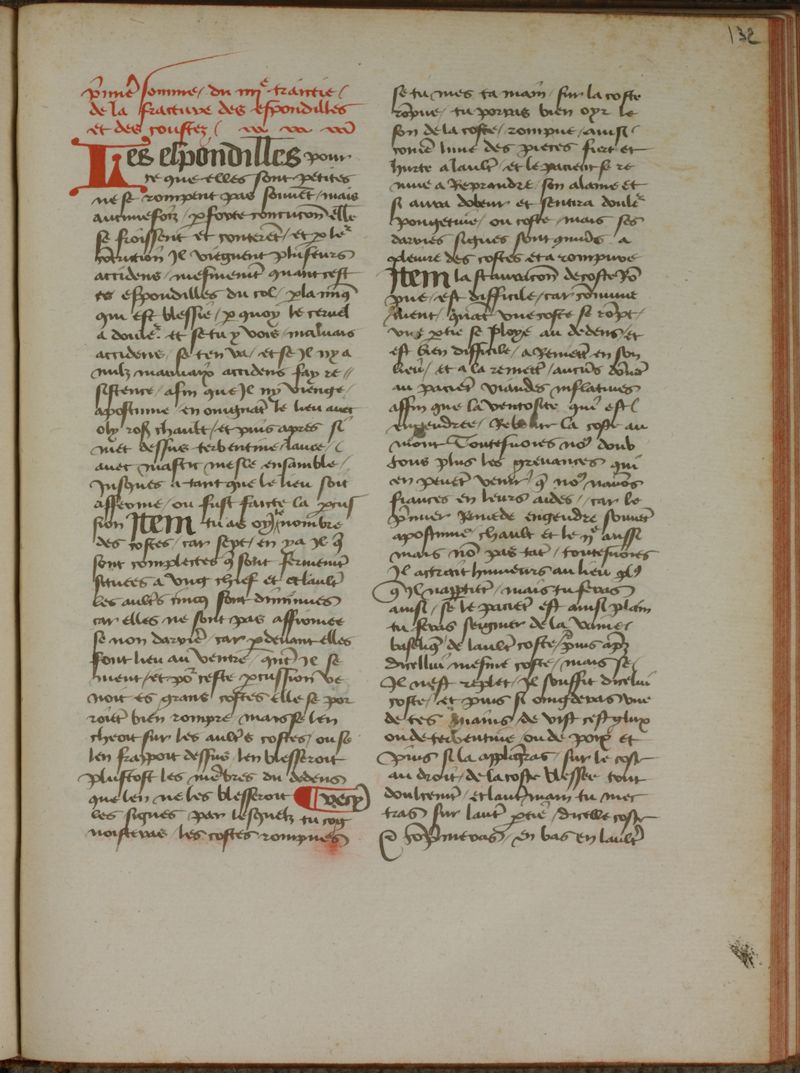 132
de la fracture des espondilles
et des coustez
Les espondilles pour
ce que elles sont petites
ne se rompent pas souvēt / mais
aucunefoiz / p forte concucōn elle
se froissent et
il viegnent plusieurs
accidens / mesmemēt quant cest
es espondilles du col / p la nucq̄
qui est blessee / p quoy le cervel
a doule^r et se tu y vois mauvais
accidens / se ten va / et se il ny a
nulz mauvaix accidens fay re //
sistence / afin que il ny viengne /
apostume en oingnāt le lieu avec
oly ros̄ chault / et puis apres si
met dessus terbentine
avec mastic mesle ensamble /
jusques a tant que le lieu soit
afferme / ou fust faicte la pcus
sion Item tu as oy le nombre
des costes / car sept / en y a il q̄
sont complectes q̄ sont fermemēt
situees a ung chief et a laultē
les aultēs cincq sont diminues
car elles ne sont pas affirmee
se non darriē / car p devant elles
font lieu au ventre / quāt il se
ment / et po^r ceste pcussion ve
noit es grans costes elle se por
roiēt bien rompre mais se len
cheoit sur les aultēs costes / ou se
len frappoit dessus / len blesseroit
plustost les mēbres du dedens
que len ne les blesseroit
les signes par lesquelz tu cog
noisteras / les costes rompues
se tu mes ta main / sur la coste
rōpue / tu porras bien oyr le
son de la coste / rompue / ainsi
comē lune des pieces fiert et
hurte a laultē / et le pacient se re
mue a reprandre son alaine et
si aura doleur et sentira doule^r
pongetive / ou coste / mais ses
darriēs signes sont
pleure des costes et a rompure
Item la de coste rō
pue / est difficile / car cōmune
ment / quāt une coste se rōpt /
une ptie se ploye au dedens et
est bien difficile / a remettē en son
lieu / et a la remettē / aucūs dōnēt
au paciēt viandes inflatives
affin que la ventosite qui est
engendree / la coste au
mont Toutesvoies no^s doub
tons plus les grevances qui
en pevēt venir / q̄ no^s navōs
fiances en leurs aides / car le
pmier remede engendre souvēt
apostume chault et le ij^e aussi
mais nō pas tāt / toutesvoies
il actrait humeurs au lieu pl^s
q̄ il nappētit / mais tu feras
ainsi / se le paciēt est ainsi plain
tu feras seigner de la vaine
basilq̄ de laultē coste / puis apz
dicellui mesme coste / mais se
il nest replet / il souffit dicelui
coste / et puis si oingderas une
de tes mains de vist cest glux
ou de terbentine ou de poix et
puis si la appliqras / sur le cost
au droit / de la coste blessee tout
doulcemēt / et lautē main tu mec
tras sur lautē ptie / dicelle coste
en bas en laultē